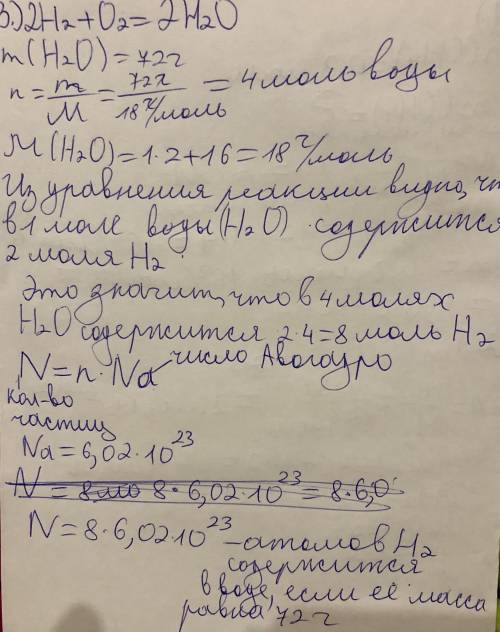 3.) 2H₂ + O₂ = 2H₂O
m(H₂O) = 72г
n = m/M = 72г/18 г/моль = 4 моль воды
M(H₂O) = 1·2+16 = 18 г/моль
Из уравнения реакции видно, чт
в 1 моле воды (H₂O) содержится
2 моля H₂.
Это значит, что в 4 молях
H₂O содержится 2·4=8 моль H₂
N = n · Na число Авогадро
кол-во
частиц
Na = 6,02·10²³
N = 8 мо 8·6,02·10²³ = 8·6,0
N = 8·6,02·10²³ – атомов H₂
содержится
в воде, если её масса
равна 72 г